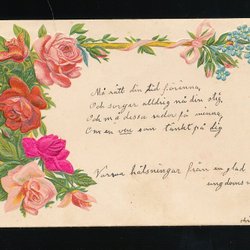 Må rätt din tid förinna,
Och sorgar alldrig nå din stig,
Och må dessa rador på minna,
Om en vän som tänkt på dig
Varma hälsningar från en glad
ungdoms